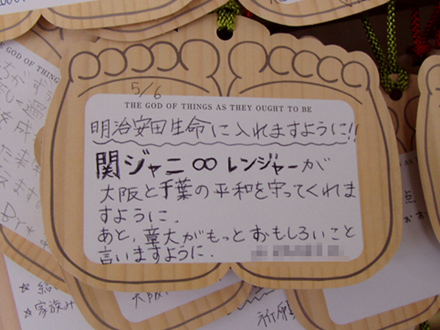 5/6
THE GOD OF THINGS AS THEY OUGHT TO BE
明治安田生命に入れますように!!
関ジャニ∞レンジャーが
大阪と千葉の平和を守ってくれま
すように.
あと、童大がもっとおもしろいこと
言いますように.
THE GOD OF THING
☆家族み
大阪
祈願